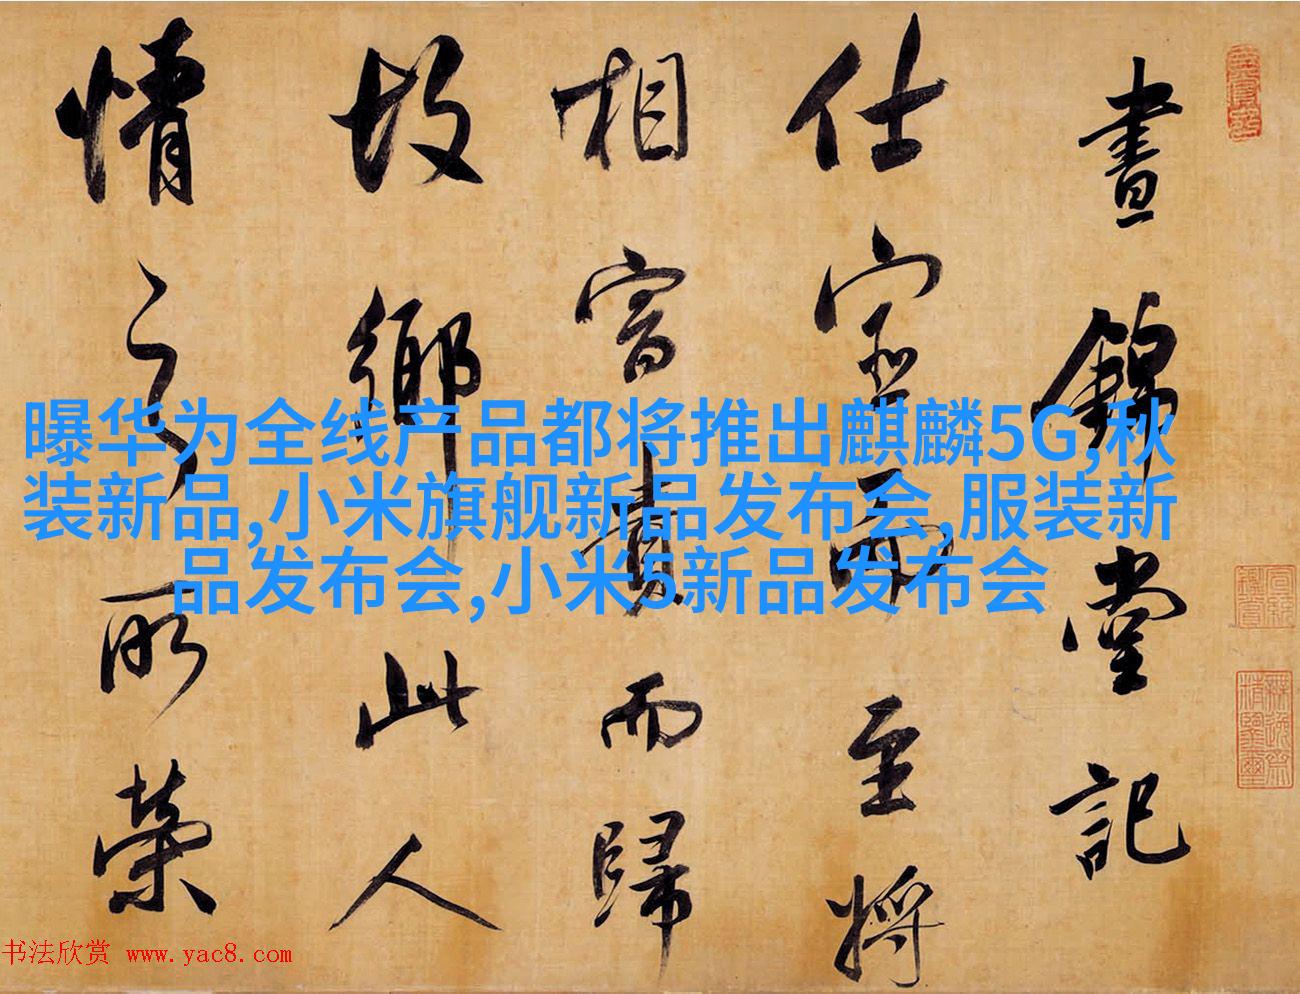 晝錦堂記
仕宦而至將
相富貴而歸
故鄉此人
情之所榮
曝华为全线产品都将推出麒麟5G,秋
装新品,小米旗舰新品发布会,服装新
品发布会,小米5新品发布会
书法欣赏 www.yac8.com